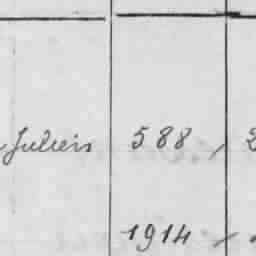 Juliers 588 ,
1914 ,